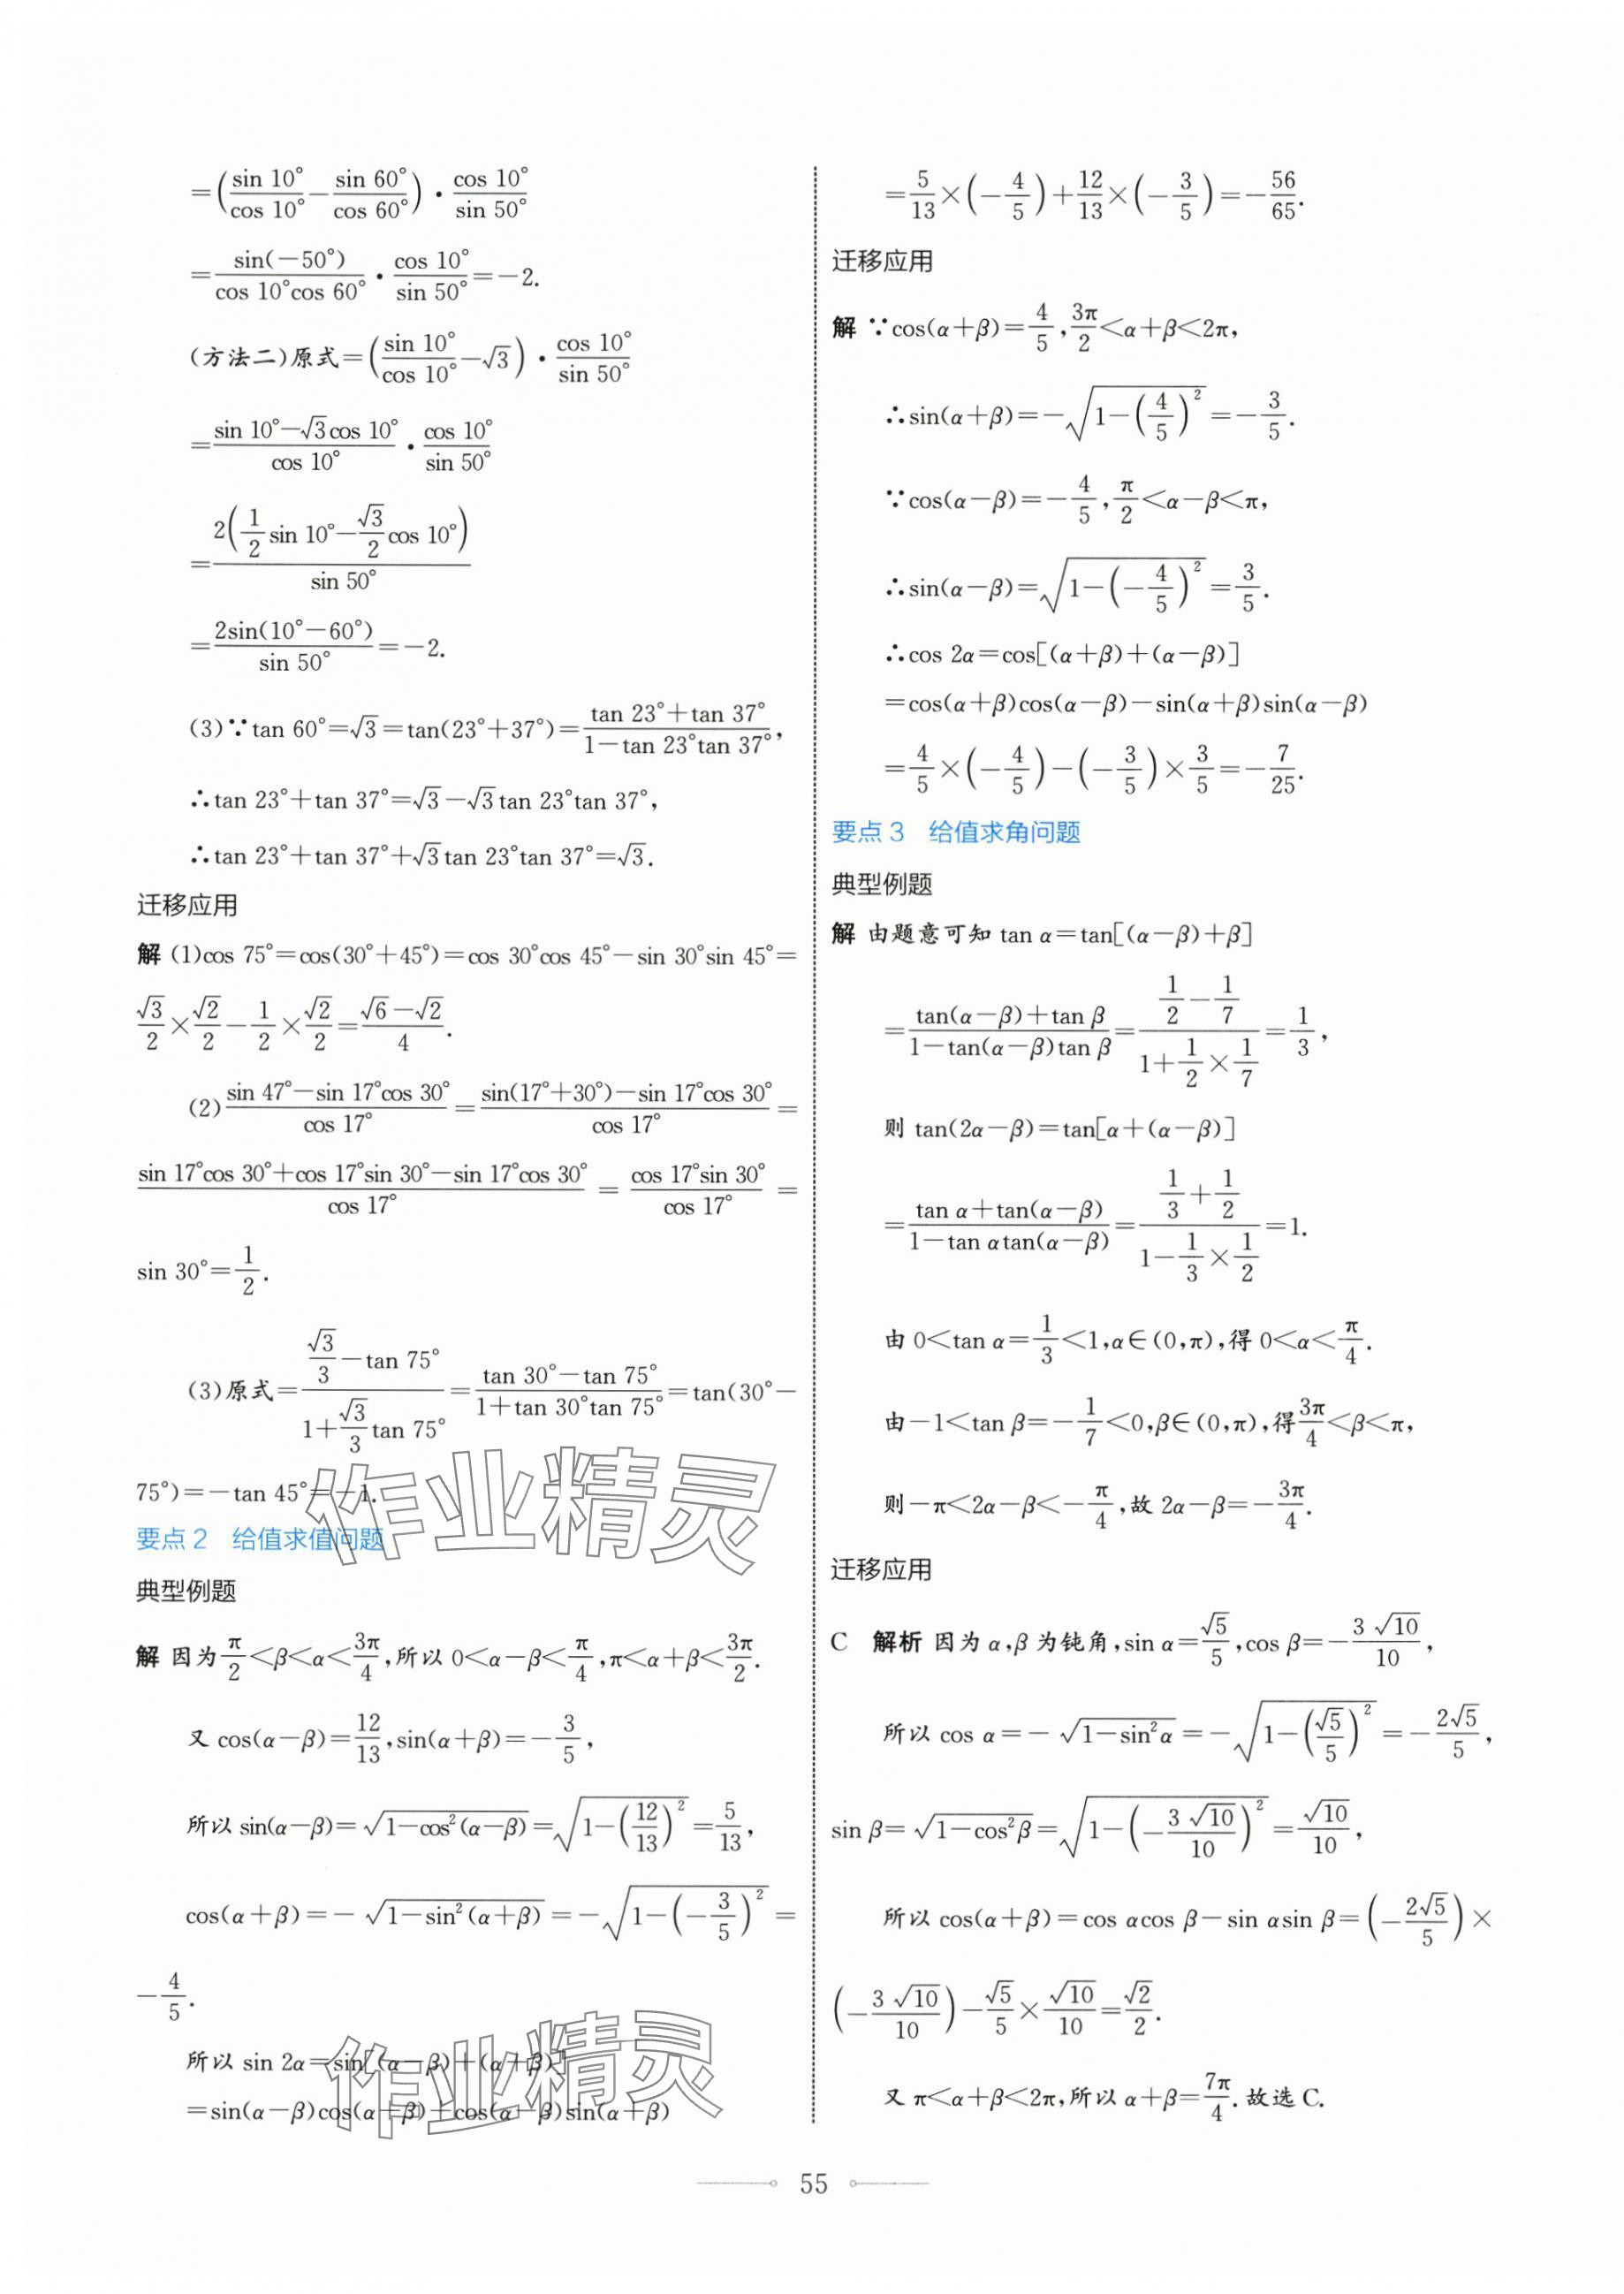 =(sin 10°/cos 10° − sin 60°/cos 60°)·cos 10°/sin 50°
=sin(−50°)/(cos 10°cos 60°)·cos 10°/sin 50°=−2.
(方法二)原式=(sin 10°/cos 10°−√3)·cos 10°/sin 50°
=(sin 10°−√3cos 10°)/cos 10°·cos 10°/sin 50°
=2(1/2 sin 10°−√3/2 cos 10°)/sin 50°
=2sin(10°−60°)/sin 50°=−2.
(3)∵tan 60°=√3=tan(23°+37°)=(tan 23°+tan 37°)/(1−tan 23°tan 37°),
∴tan 23°+tan 37°=√3−√3tan 23°tan 37°,
∴tan 23°+tan 37°+√3tan 23°tan 37°=√3.
迁移应用
解 (1)cos 75°=cos(30°+45°)=cos 30°cos 45°−sin 30°sin 45°=
√3/2×√2/2−1/2×√2/2=(√6−√2)/4.
(2)(sin 47°−sin 17°cos 30°)/cos 17°=(sin(17°+30°)−sin 17°cos 30°)/cos 17°=
(sin 17°cos 30°+cos 17°sin 30°−sin 17°cos 30°)/cos 17°=(cos 17°sin 30°)/cos 17°=
sin 30°=1/2.
(3)原式=(√3/3−tan 75°)/(1+√3/3 tan 75°)=(tan 30°−tan 75°)/(1+tan 30°tan 75°)=tan(30°−
75°)=−tan 45°=−1.
要点 2 给值求值问题
典型例题
解 因为π/2<β<α<3π/4,所以 0<α−β<π/4,π<α+β<3π/2.
又 cos(α−β)=12/13,sin(α+β)=−3/5,
所以 sin(α−β)=√(1−cos²(α−β))=√(1−(12/13)²)=5/13,
cos(α+β)=−√(1−sin²(α+β))=−√(1−(−3/5)²)=
−4/5.
所以 sin 2α=sin[(α−β)+(α+β)]
=sin(α−β)cos(α+β)+cos(α−β)sin(α+β)
=5/13×(−4/5)+12/13×(−3/5)=−56/65.
迁移应用
解 ∵cos(α+β)=4/5,3π/2<α+β<2π,
∴sin(α+β)=−√(1−(4/5)²)=−3/5.
∵cos(α−β)=−4/5,π/2<α−β<π,
∴sin(α−β)=√(1−(−4/5)²)=3/5.
∴cos 2α=cos[(α+β)+(α−β)]
=cos(α+β)cos(α−β)−sin(α+β)sin(α−β)
=4/5×(−4/5)−(−3/5)×3/5=−7/25.
要点 3 给值求角问题
典型例题
解 由题意可知 tan α=tan[(α−β)+β]
=(tan(α−β)+tan β)/(1−tan(α−β)tan β)=(1/2−1/7)/(1+1/2×1/7)=1/3,
则 tan(2α−β)=tan[α+(α−β)]
=(tan α+tan(α−β))/(1−tan αtan(α−β))=(1/3+1/2)/(1−1/3×1/2)=1.
由 0<tan α=1/3<1,α∈(0,π),得 0<α<π/4.
由−1<tan β=−1/7<0,β∈(0,π),得3π/4<β<π,
则−π<2α−β<−π/4,故 2α−β=−3π/4.
迁移应用
C 解析 因为 α,β 为钝角,sin α=√5/5,cos β=−3√10/10,
所以 cos α=−√(1−sin²α)=−√(1−(√5/5)²)=−2√5/5,
sin β=√(1−cos²β)=√(1−(−3√10/10)²)=√10/10,
所以 cos(α+β)=cos αcos β−sin αsin β=(−2√5/5)×
(−3√10/10)−√5/5×√10/10=√2/2.
又 π<α+β<2π,所以 α+β=7π/4.故选 C.
55
作业精灵
作业精灵